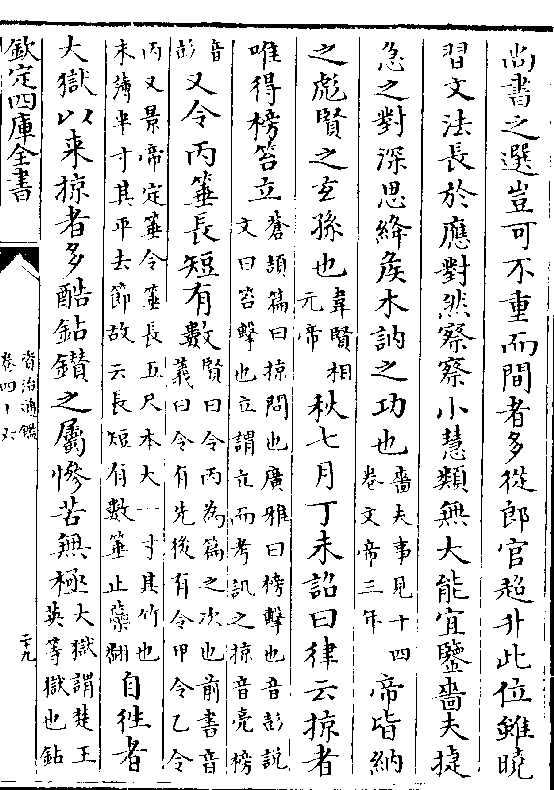 尚書之選豈可不重而間者多從郎官超升此位雖曉
習文法長於應對然察察小慧類無大能宜鑒嗇夫捷
急之對深思絳侯木訥之功也嗇夫事見十四卷文帝三年帝皆納
之彪賢之玄孫也韋賢相元帝秋七月丁未詔曰律云掠者
唯得榜笞立蒼頡篇曰掠問也廣雅曰榜擊也音彭說文曰笞擊也立謂立而考訊之掠音亮榜
音彭又令丙箠長短有數賢曰令丙為篇之次也前書音義曰令有先後有令甲令乙令
丙又景帝定箠令箠長五尺本大一寸其竹也末薄半寸其平去節故云長短有數箠止橤翻自往者
大獄以来掠者多酷鉆鑽之屬慘苦無極大獄謂楚王英等獄也鉆
欽定四庫全書
資治通鑑
卷四十六
二十九